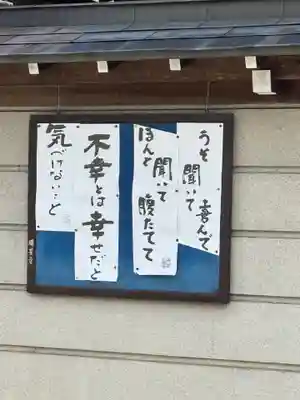 うそ聞いて喜んで
ほんと聞いて腹たてて
不幸とは幸せだと
気づけないこと